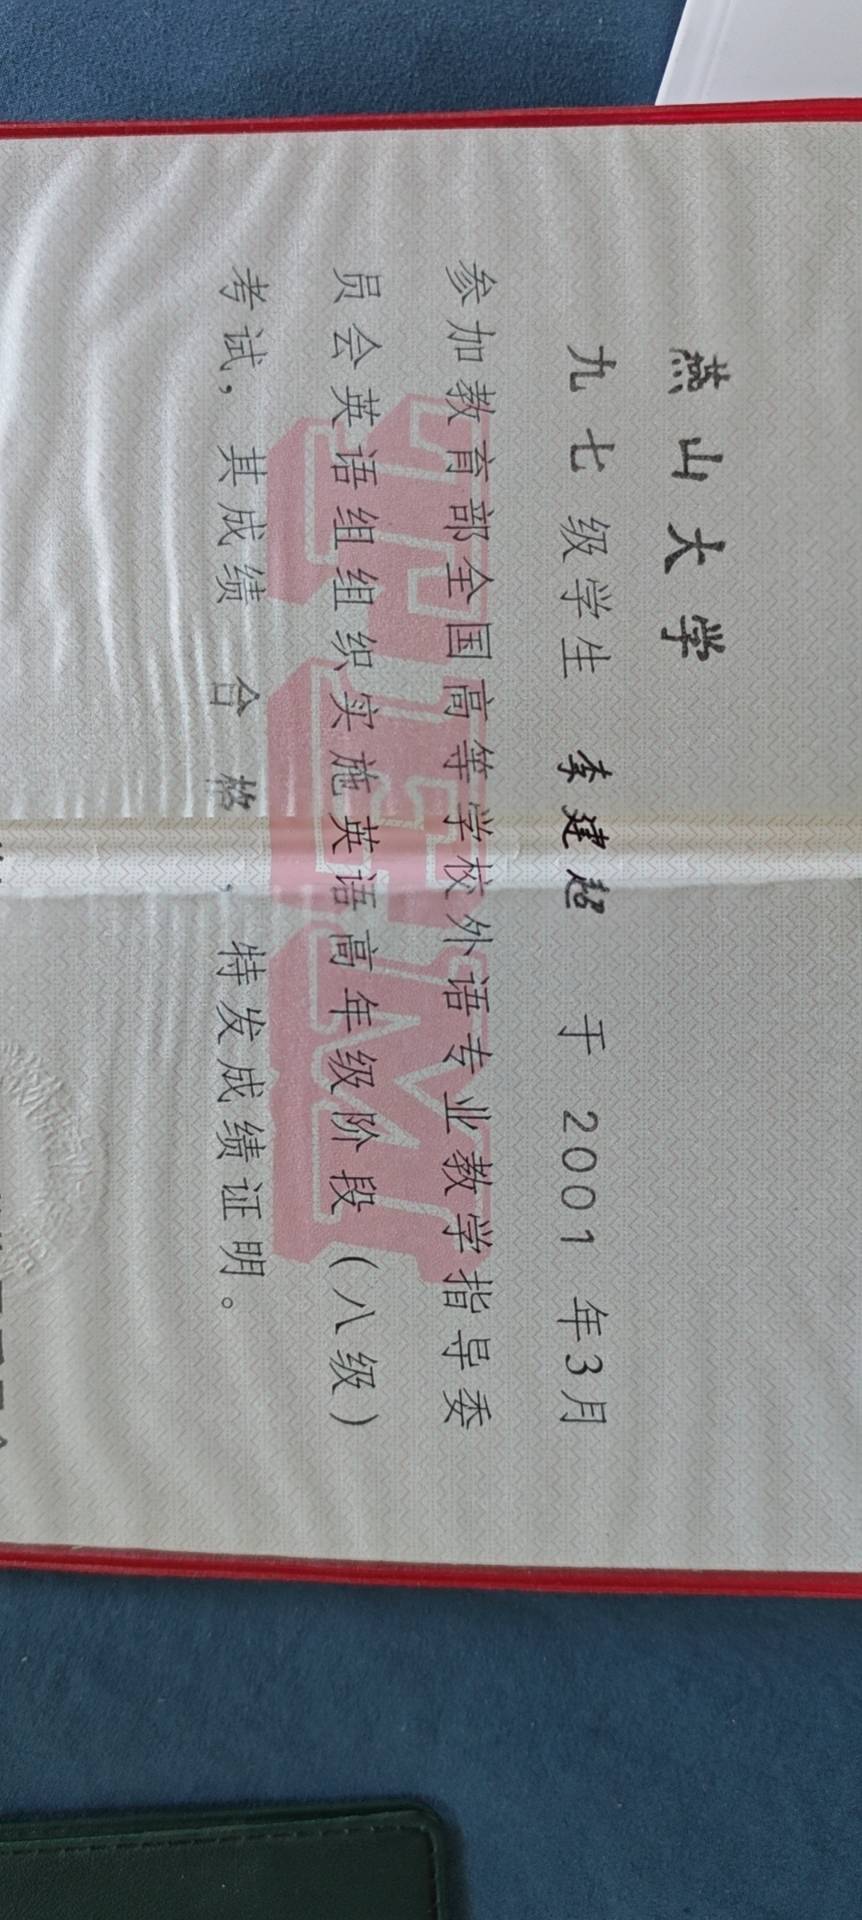 燕山大学
九七级学生 李建超 于 2001 年3月
参加教育部全国高等学校外语专业教学指导委
员会英语组组织实施英语高年级阶段（八级）
考试，其成绩 合格 ，特发成绩证明。
TEM